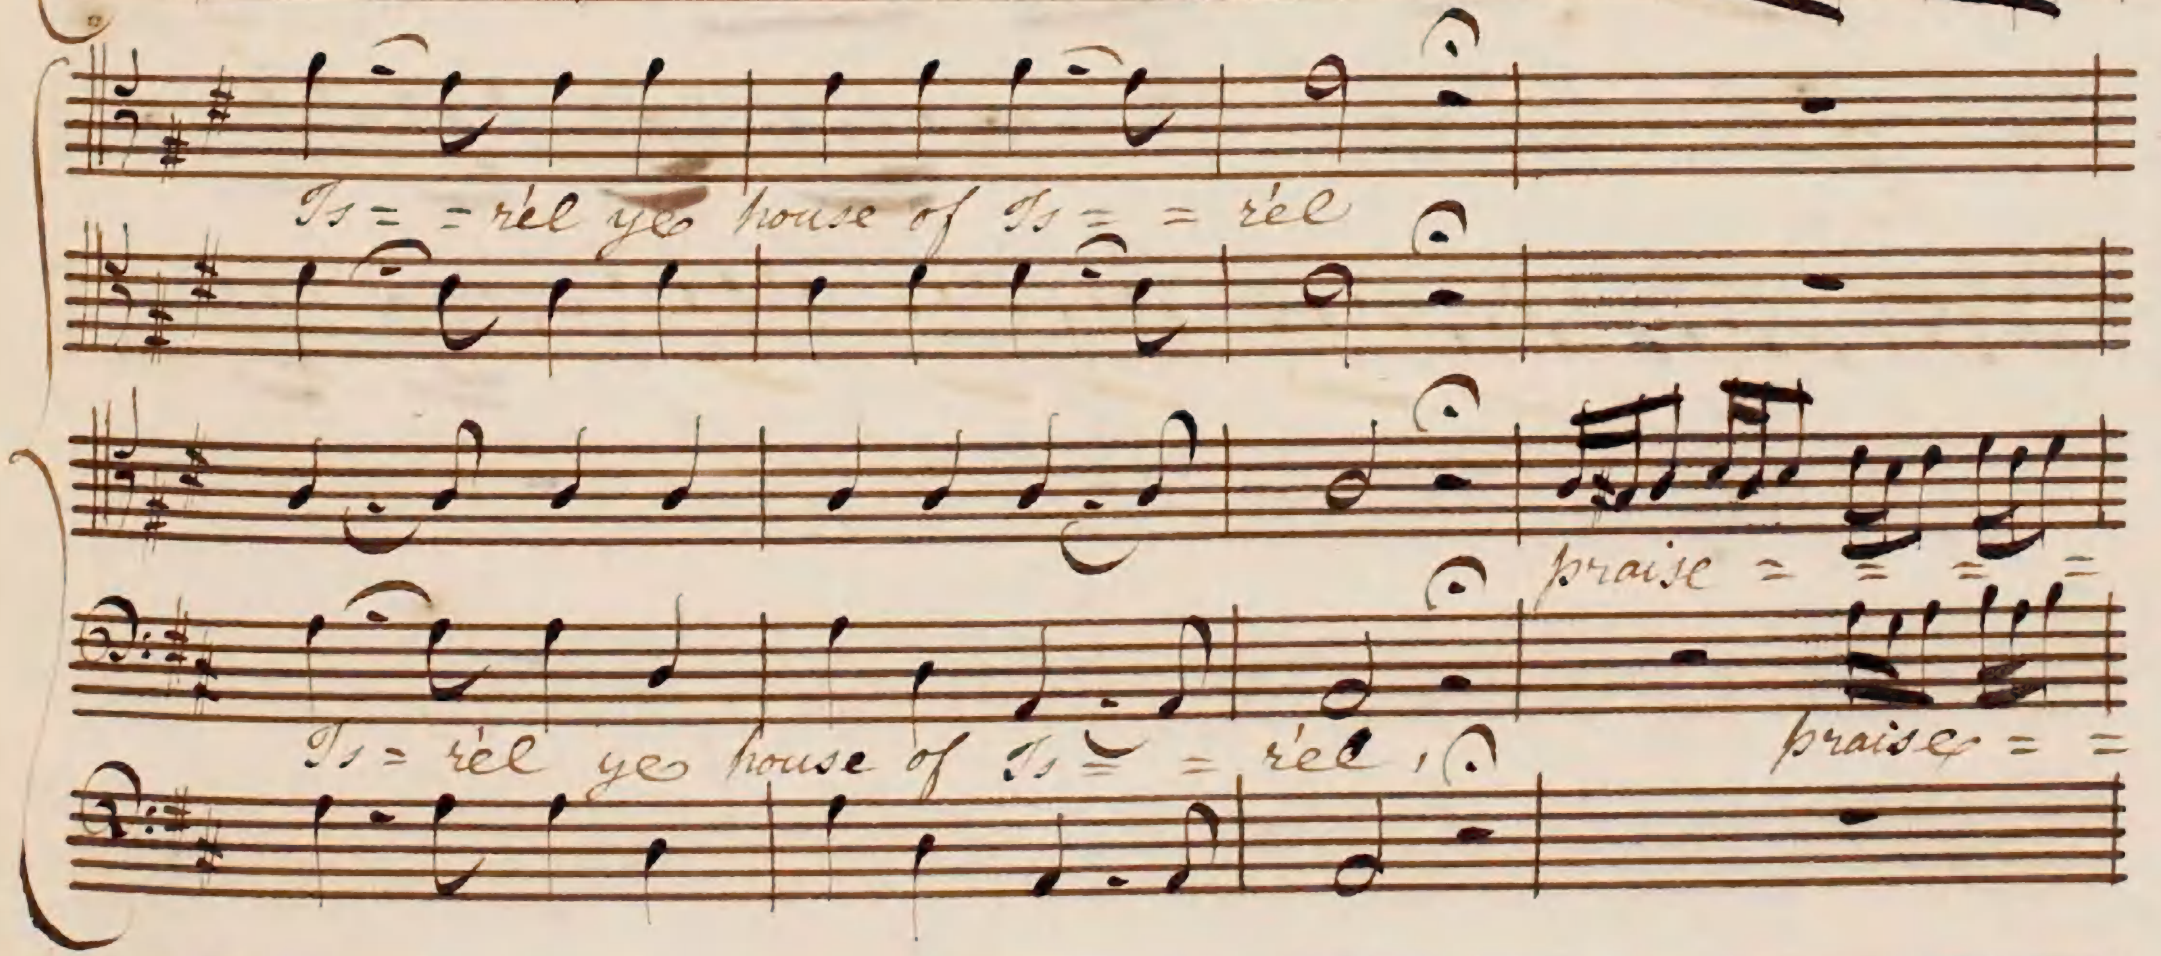 Is= =rèl ye house of Is= = rèl
praise = = = =
Is= rèl ye house of Is= = rèl,
praise = =